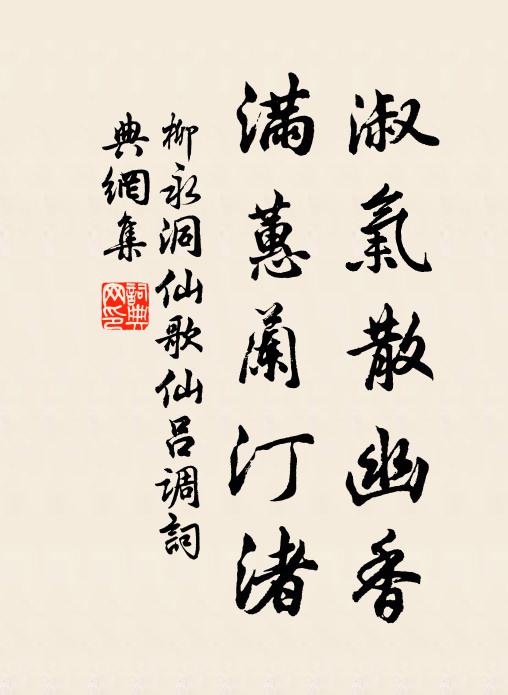 淑氣散幽香
滿蕙蘭汀渚
柳永洞仙歌仙呂調詞
典網集
詞典网印